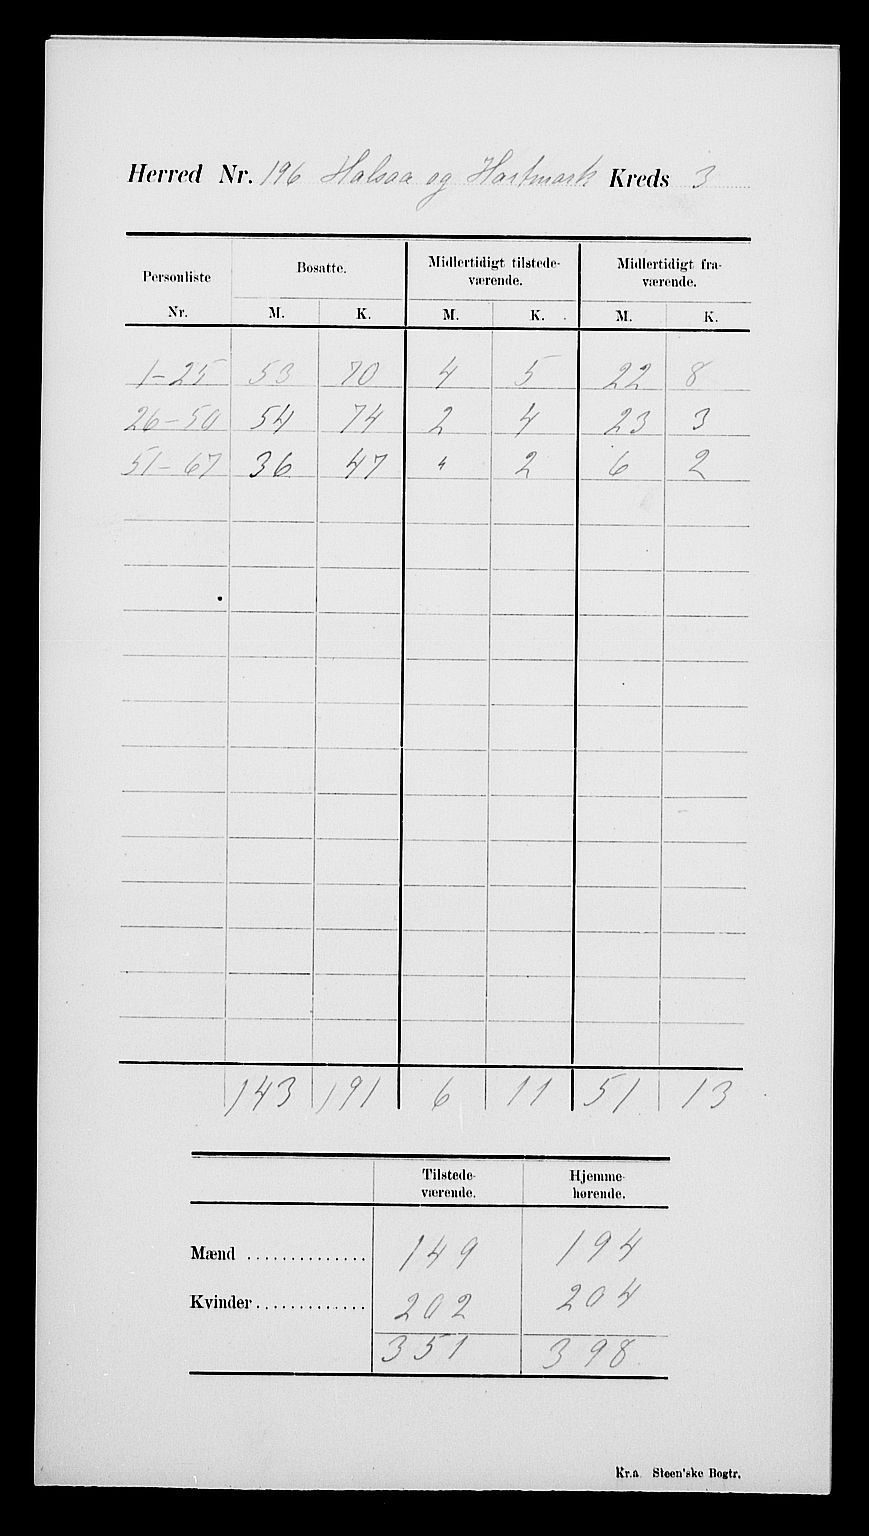 Herred Nr. 196 Halsaa og Hartmark Kreds 3
Personliste Nr. Bosatte. Midlertidigt tilstede-værende. Midlertidigt fra-værende.
M. K. M. K. M. K.
1-25 53 70 4 5 22 8
26-50 54 74 2 4 23 3
51-67 36 47 " 2 6 2
143 191 6 11 51 13
Tilstede-værende. Hjemme-hørende.
Mænd .............. 149 194
Kvinder ............. 202 204
351 398
Kr.a Steen'ske Bogtr.